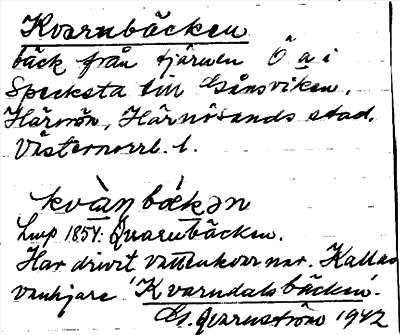 Kvarnbäcken
bäck från tjärnen Ö a i
Specksta till Gånsviken,
Härnön, Härnösands stad,
Västernorrl. l.
kvàṇbǽkən
Lmp 1854: Quarnbäcken.
Har drivit vattenkvarnar. Kallas
vanligare "Kvarndalsbäcken".
G. Qvarnström 1942